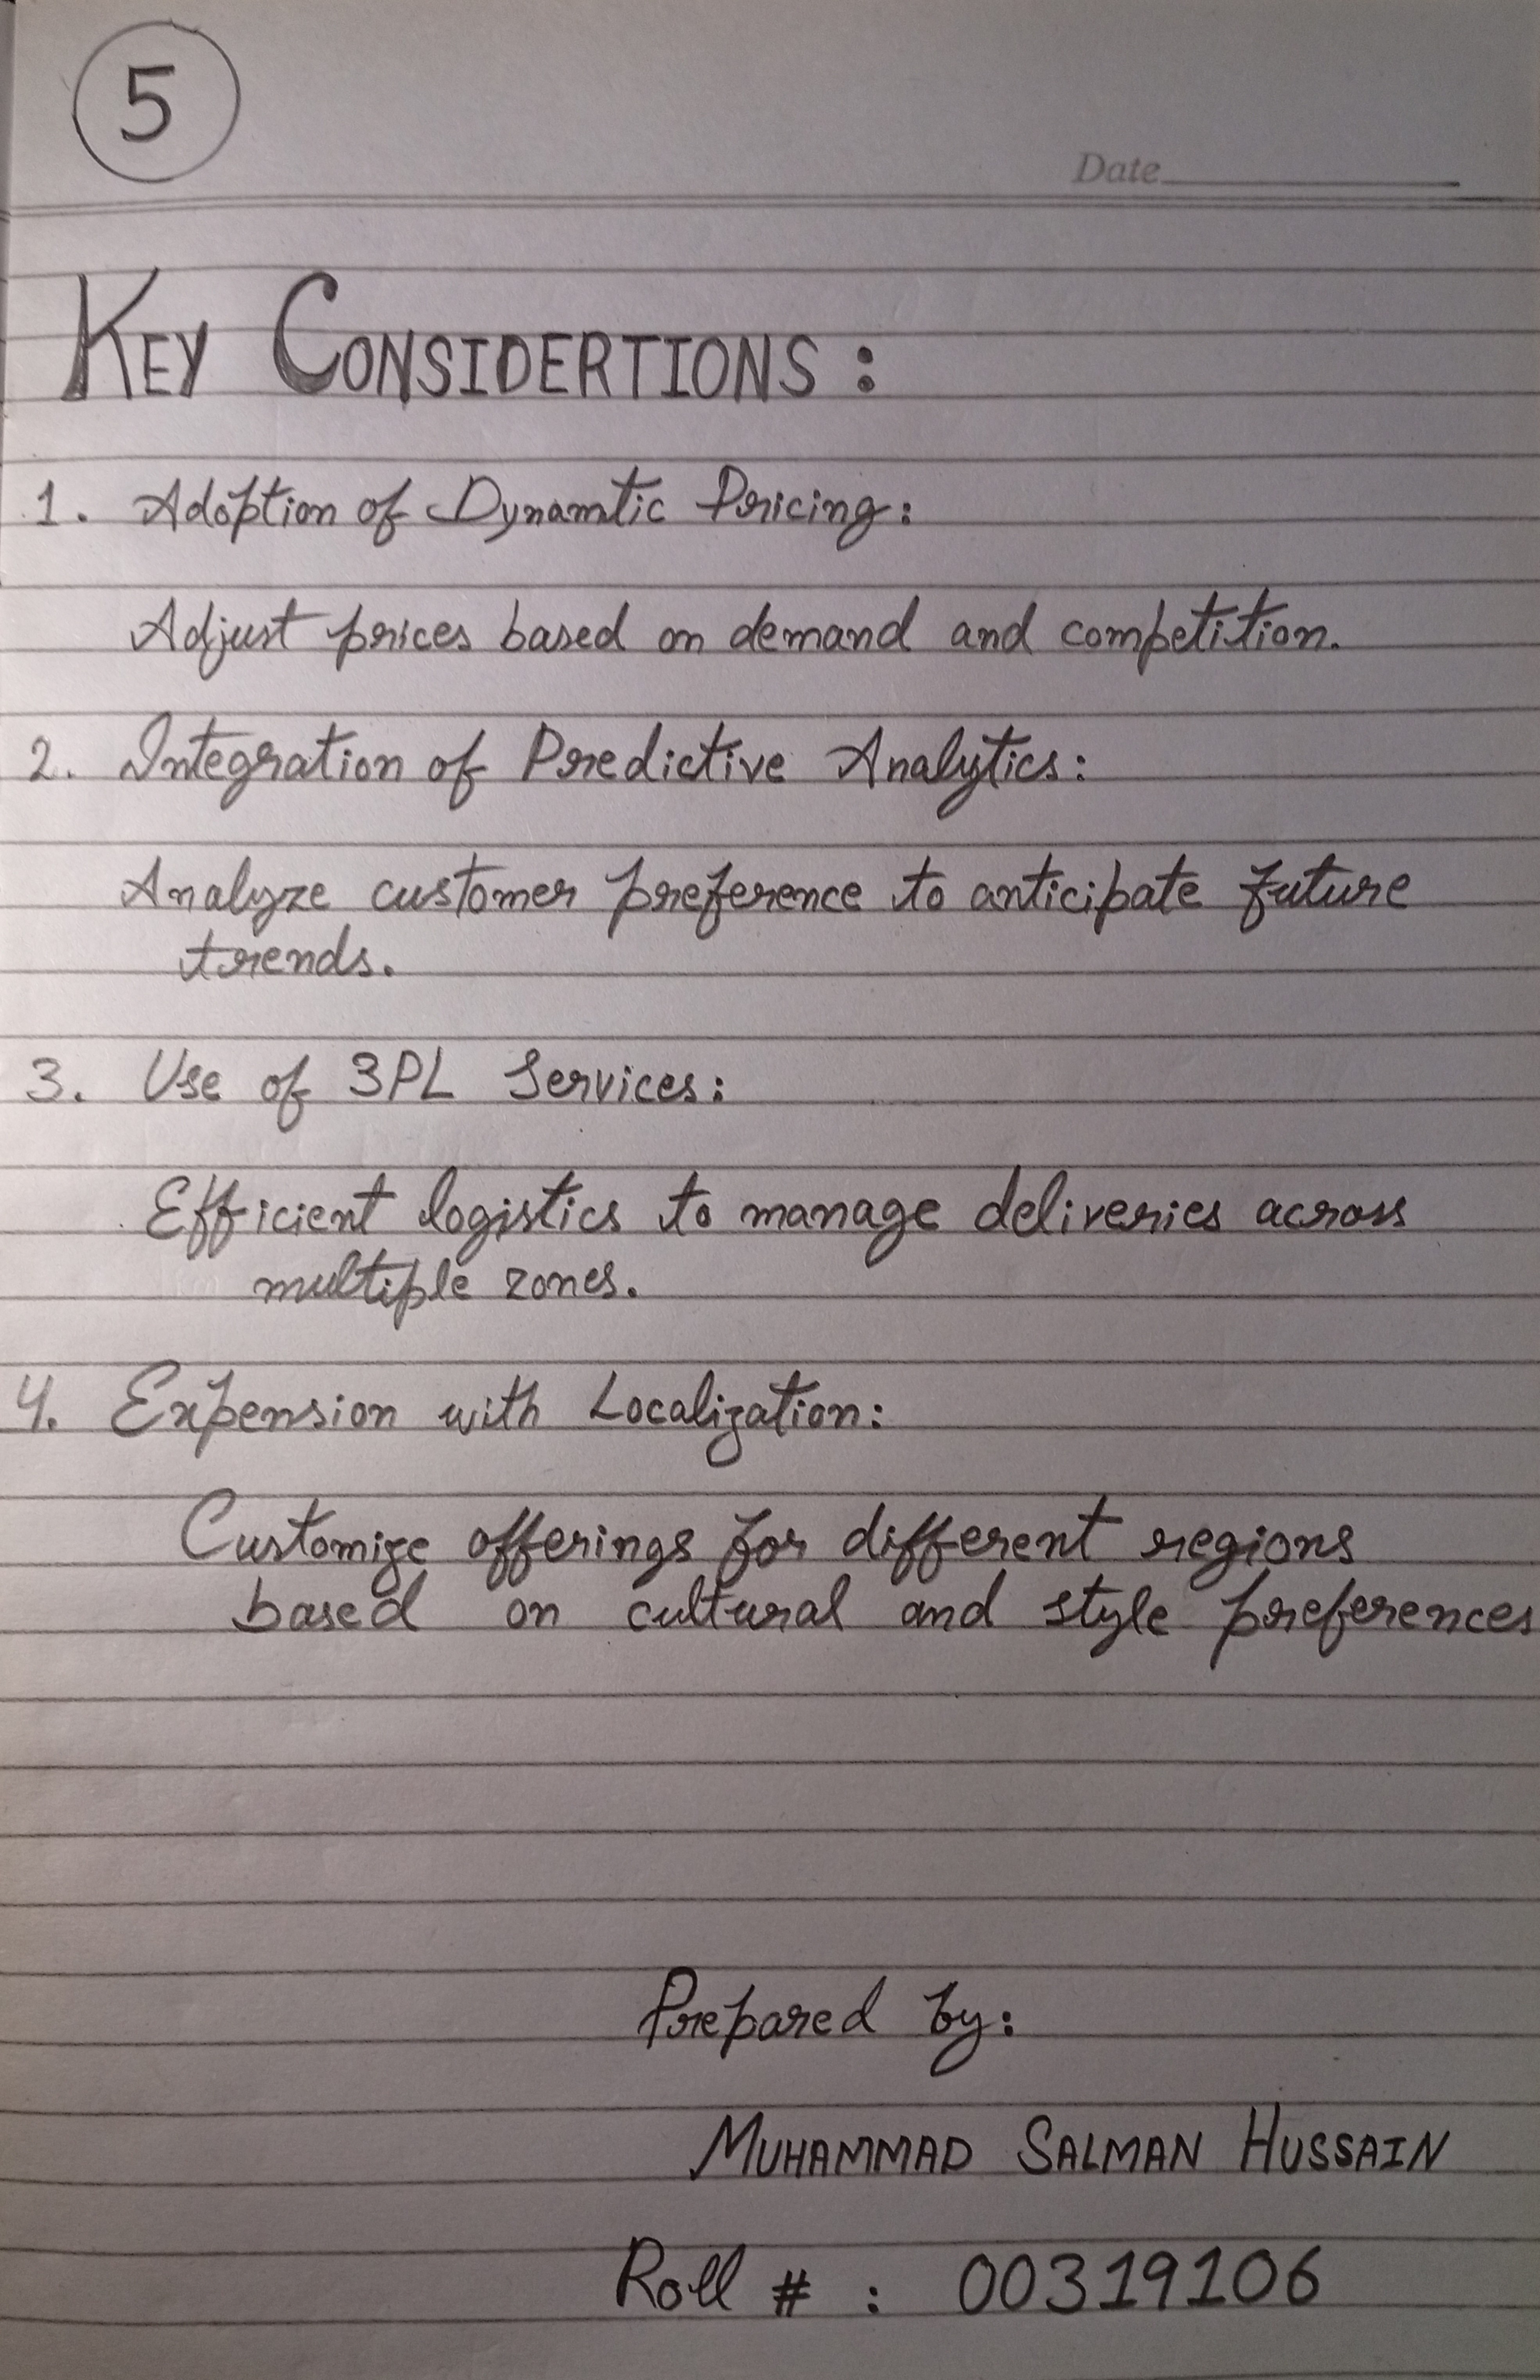 5
Date
KEY CONSIDERTIONS :
1. Adoption of Dynamtic Pricing:
Adjust prices based on demand and competition.
2. Integration of Predictive Analytics:
Analyze customer preference to anticipate future
trends.
3. Use of 3PL Services:
Efficient logistics to manage deliveries across
multiple zones.
4. Expension with Localization:
Customize offerings for different regions
based on cultural and style preferences
Prepared by:
MUHAMMAD SALMAN HUSSAIN
Roll # : 00319106